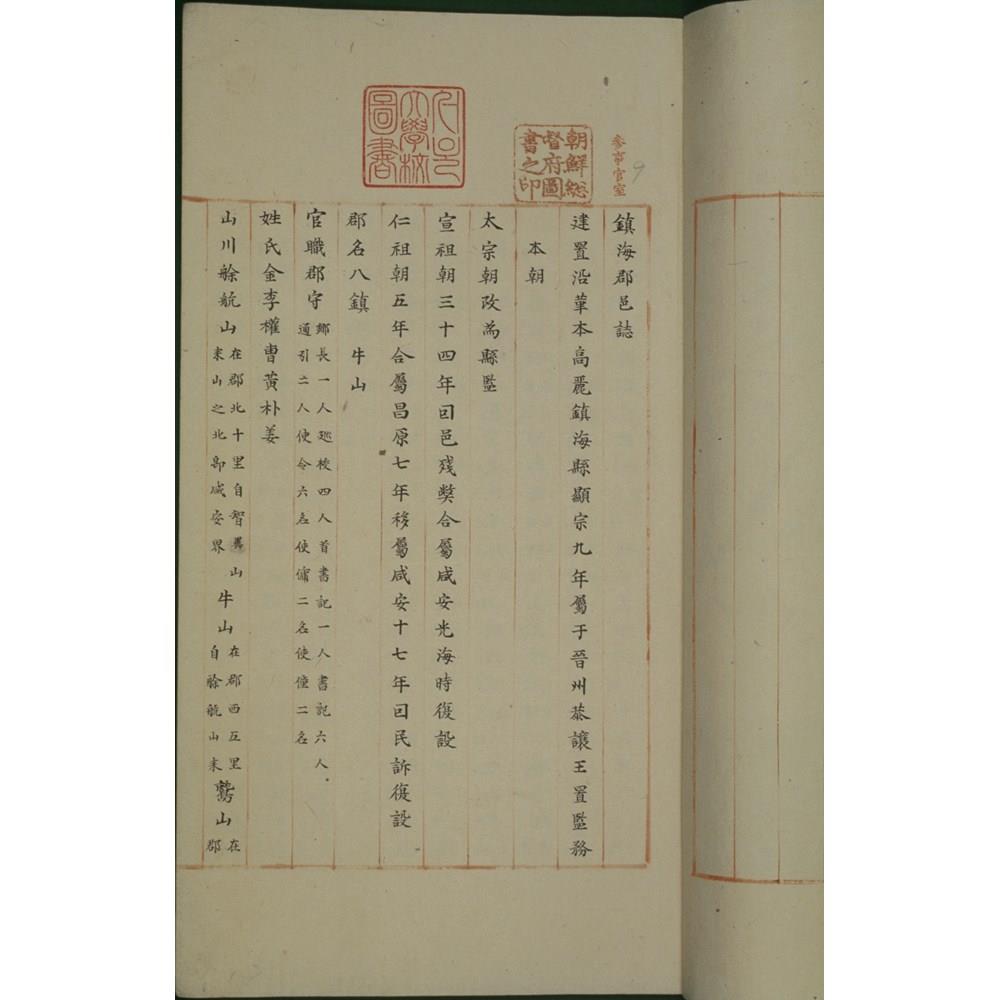 鎮海郡邑誌
建置沿革本高麗鎮海縣顯宗九年屬于晉州恭讓王置監務
本朝
太宗朝改為縣監
宣祖朝三十四年因邑殘獘合屬咸安光海時復設
仁祖朝五年合屬昌原七年移屬咸安十七年因民訴復設
郡名八鎮 牛山
官職郡守 鄉長一人廵校四人首書記一人書記六人
通引二人使令六名使傭二名使僮二名
姓氏金李權曹黃朴姜
山川艅航山 在郡北十里自智異山
來山之北即咸安界 牛山 在郡西五里
自艅航山來 鷲山 在
郡
朝鮮総
督府圖
書之印
参事官室
大學校
圖書
9